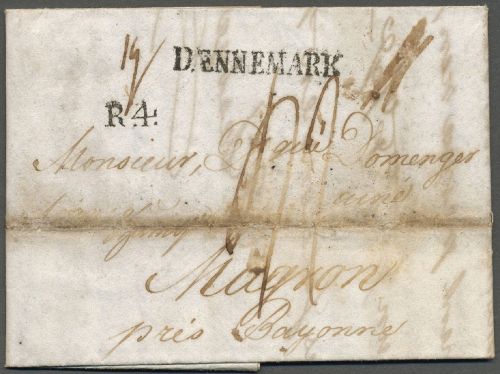 DENNEMARK
R.4.
Monsieur, Domenger
ainé
Magron
prés Bayonne